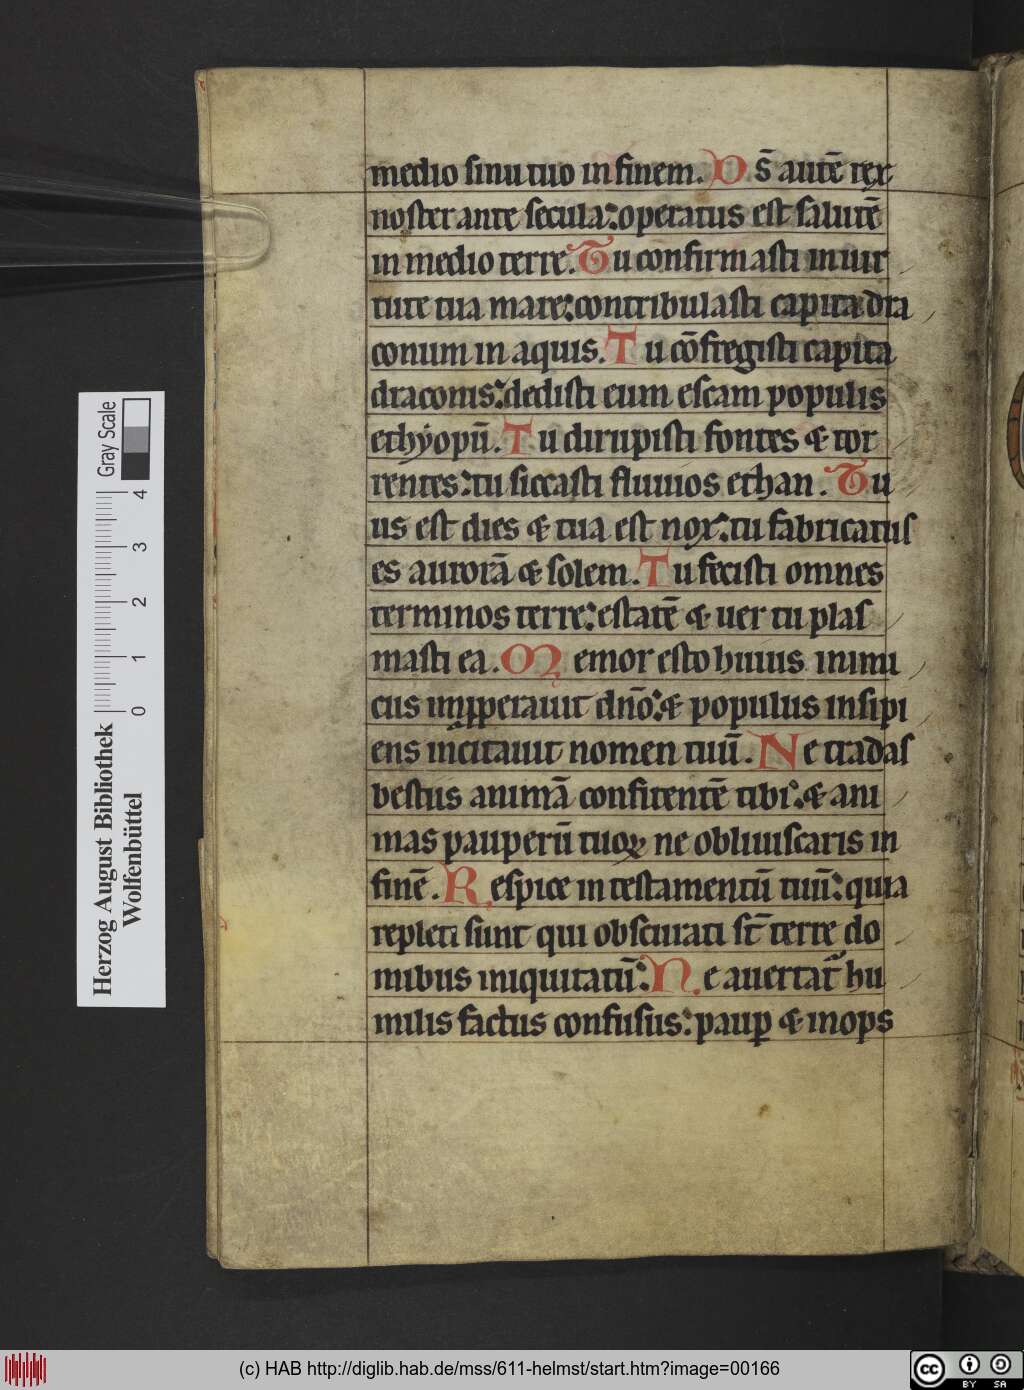 medio sinu tuo in finem. D s̄ autē rex
noster ante secula: operatus est salutē
in medio terre. Tu confirmasti in uir
tute tua mare: contribulasti capita dra
conum in aquis. Tu cōfregisti capita
draconis: dedisti eum escam populis
ethyopū. Tu dirupisti fontes & tor
rentes: tu siccasti fluuios ethan. Tu
us est dies & tua est nox: tu fabricatus
es aurorā & solem. Tu fecisti omnes
terminos terre: estatē & uer tu plas
masti ea. Memor esto huius inimi
cus inpperauit dn̄o: & populus insipi
ens incitauit nomen tuū. Ne tradas
bestiis animā confitentē tibi: & ani
mas pauperū tuoꝝ ne obliuiscaris in
finē. Respice in testamentū tuū: quia
repleti sunt qui obscurati st̄ terre do
mibus iniquitatū: Ne auertat᷑ hu
milis factus confusus: paup̱ & inops
Herzog August Bibliothek
Wolfenbüttel
0 1 2 3 4
Gray Scale
(c) HAB http://diglib.hab.de/mss/611-helmst/start.htm?image=00166
cc BY SA